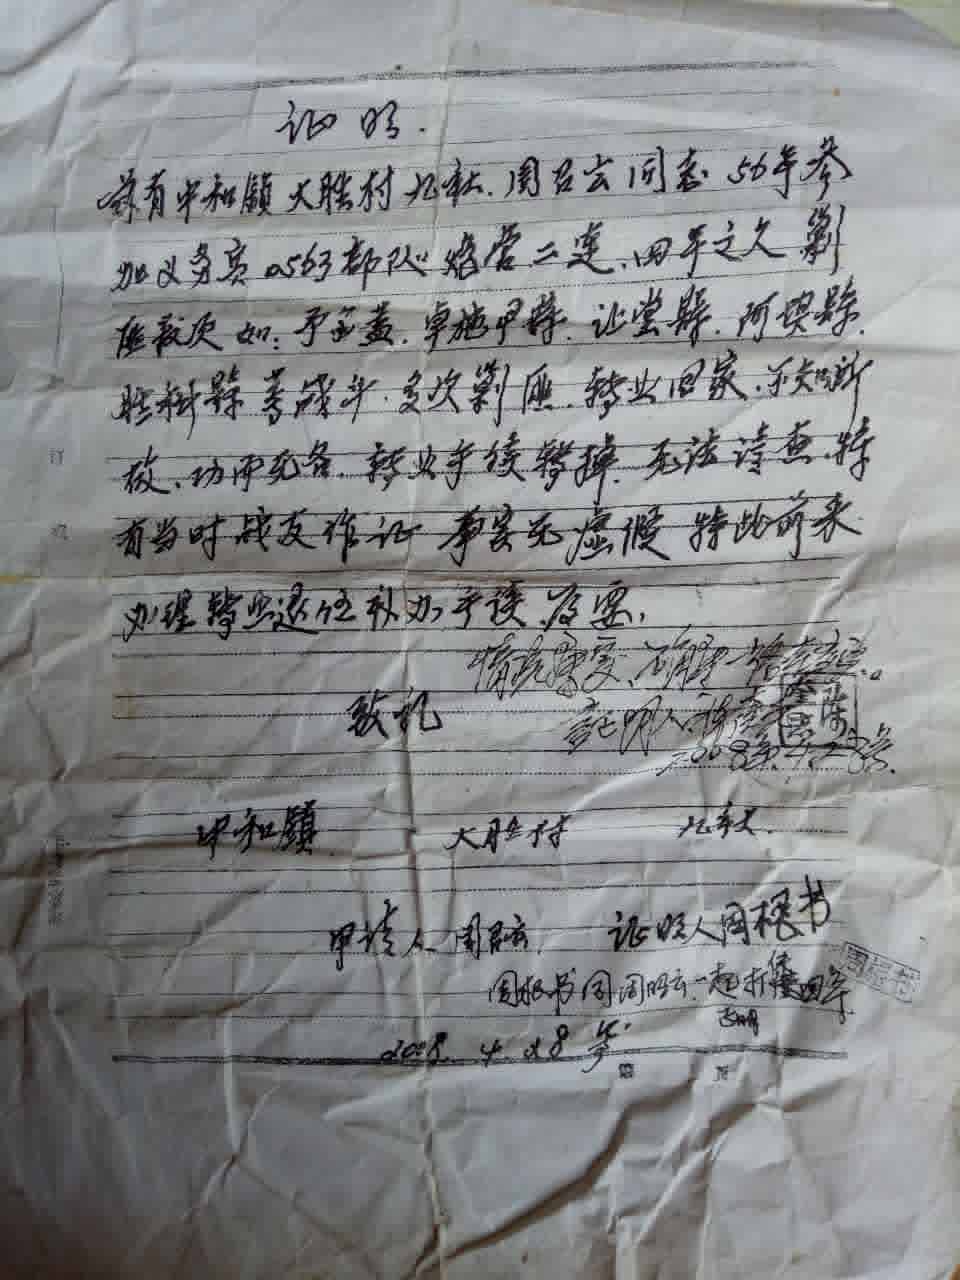 证明.
兹有中和镇大胜村九社.周召云同志56年参
加义务兵0563部队炮营二连、四年之久剿
匪数次如:予金盖.卓施甲县.让堂县.阿坝县.
县等战斗.多次剿匪.转业回家.不知所
故、功而无名.转业手续掉.无法清查.特
有当时战友作证事实无虚假特此前来
办理转业退伍补办手续为要,
情况属实、
证明人
2008年4.28号.
致礼
中和镇 大胜村 九社.
申请人周召云. 证明人周根书
周根书同周召云一起当四年
2008.4.28号.